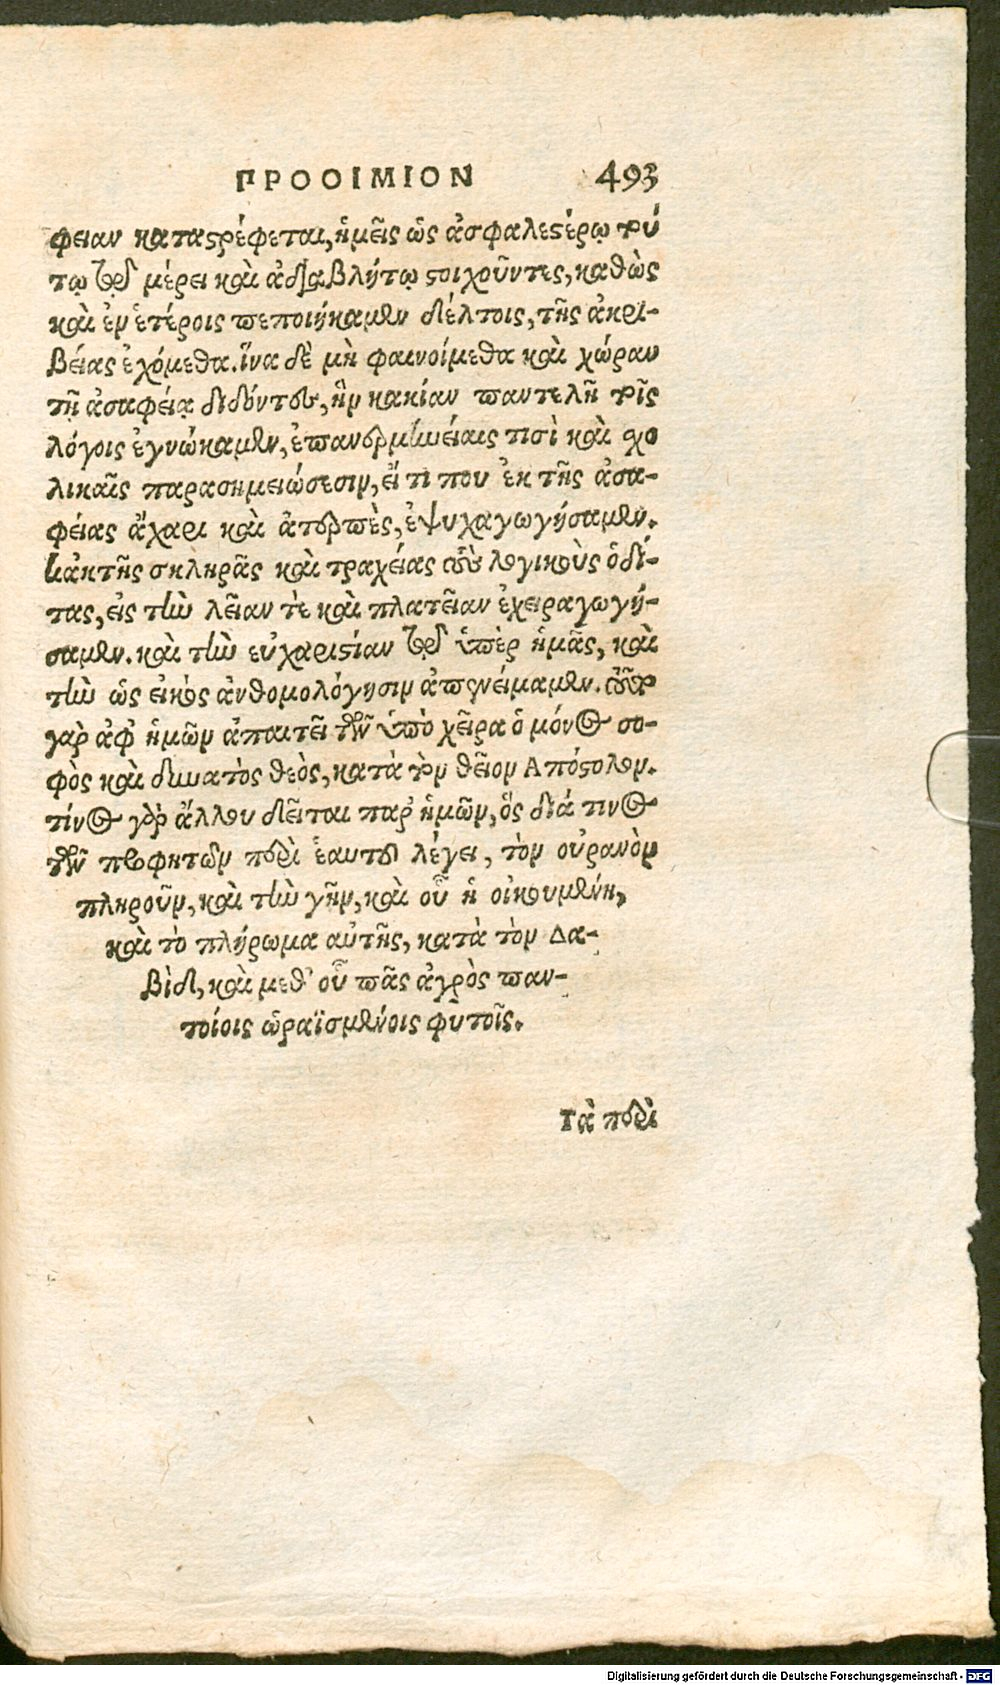 ΠΡΟΟΙΜΙΟΝ 493
φειαν καταστρέφεται, ἡμεῖς ὡς ἀσφαλεστέρῳ τού
τῳ τῷ μέρει καὶ ἀδιαβλήτῳ στοιχοῦντες, καθὼς
καὶ ἐν ἑτέροις πεποιήκαμεν δέλτοις, τῆς ἀκρι-
βείας ἐχόμεθα. ἵνα δὲ μὴ φαινοίμεθα καὶ χώραν
τῇ ἀσαφείᾳ διδόντες, ἣν κακίαν παντελῆ τοῖς
λόγοις ἐγνώκαμεν, ἑρμηνείαις τισὶ καὶ σχο
λικαῖς παρασημειώσεσιν, εἴ τι που ἐκ τῆς ἀσα-
φείας ἄχαρι καὶ ἀτερπὲς, ἐψυχαγωγήσαμεν.
κἀκ τῆς σκληρᾶς καὶ τραχείας τοὺς λογικοὺς ὁδί-
τας, εἰς τὴν λεῖαν τὲ καὶ πλατεῖαν ἐχειραγωγή-
σαμεν. καὶ τὴν εὐχαριστίαν τῷ ὑπὲρ ἡμᾶς, καὶ
τὴν ὡς εἰκὸς ἀνθομολόγησιν ἀπονείμαμεν. τοῦτο
γὰρ ἀφ ἡμῶν ἀπαιτεῖ τῶν ὑπὸ χεῖρα ὁ μόνος σο-
φὸς καὶ δυνατὸς θεὸς, κατὰ τὸν θεῖον Ἀπόστολον.
τίνος γὰρ ἄλλου δεῖται παρ ἡμῶν, ὅς διά τινος
τῶν προφητῶν περὶ ἑαυτοῦ λέγει, τὸν οὐρανὸν
πληροῦν, καὶ τὴν γῆν, καὶ οὗ ἡ οἰκουμένη,
καὶ τὸ πλήρωμα αὐτῆς, κατὰ τὸν Δα-
βὶδ, καὶ μεθ' οὗ πᾶς ἀγρὸς παν-
τοίοις ὡραϊσμένοις φυτοῖς.
Τὰ περὶ
Digitalisierung gefördert durch die Deutsche Forschungsgemeinschaft - DFG